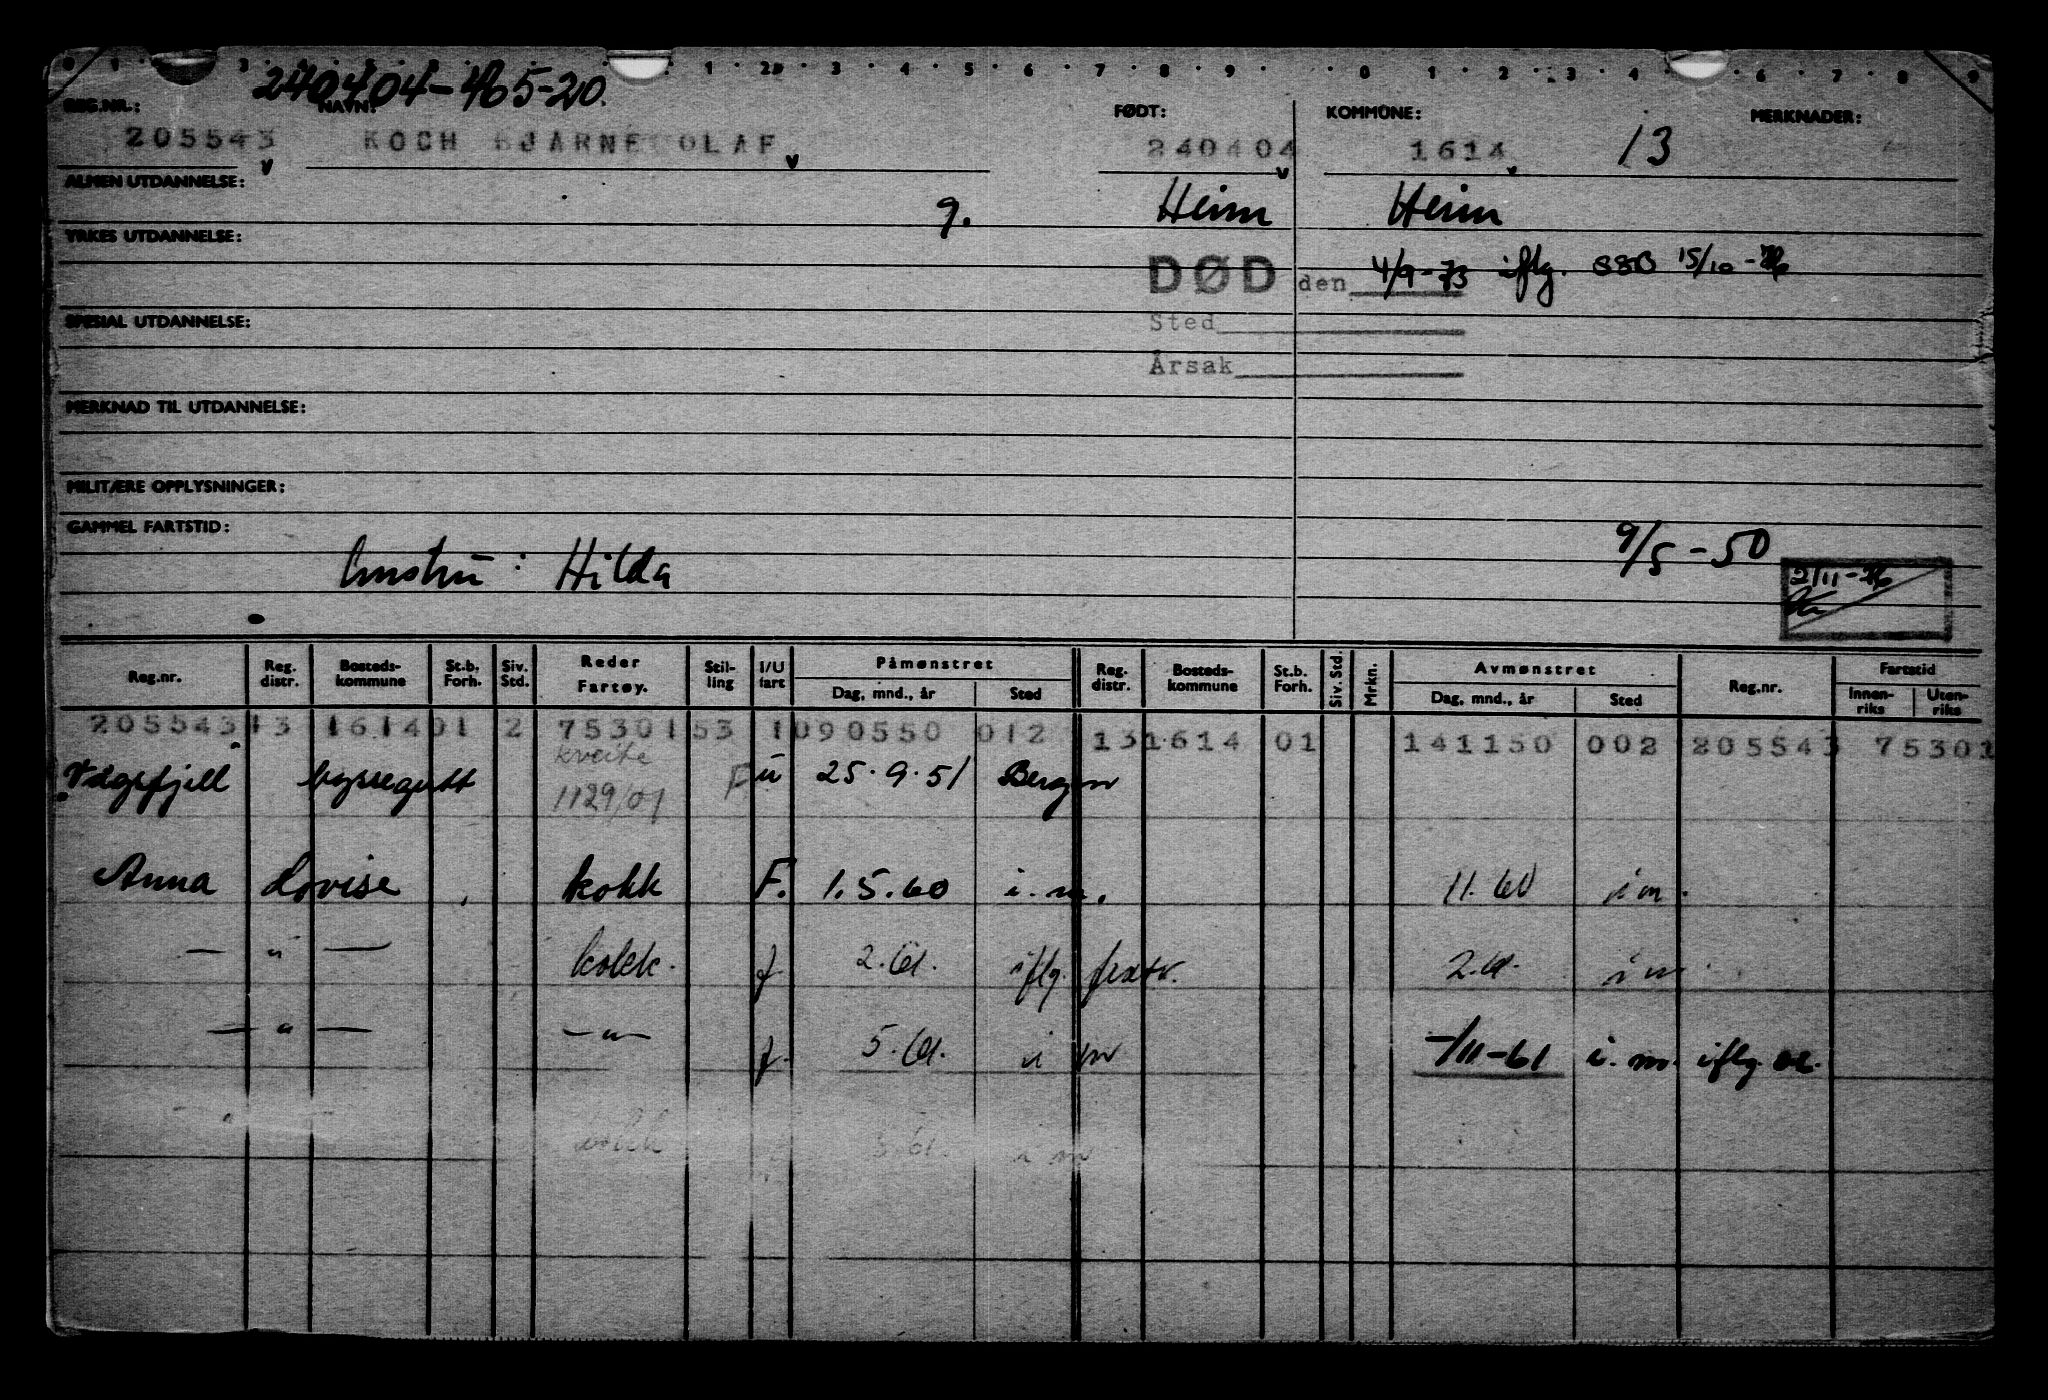 240404-465-20.
REG.NR.: NAVN: FØDT: KOMMUNE: MERKNADER:
205543 KOCH BJARNE OLAF 240404 1614 13
ALMEN UTDANNELSE:
g. Heim Heim
YRKES UTDANNELSE:
DØD den 4/9-73 iflg. SSB 15/10-76
SPESIAL UTDANNELSE:
Sted
Årsak
MERKNAD TIL UTDANNELSE:
MILITÆRE OPPLYSNINGER:
GAMMEL FARTSTID:
Hilda 9/5-50
2/11-76
Reg.nr. Reg. distr. Bosteds-kommune St.b. Forh. Siv. Std. Reder Fartøy. Stil-ling I/U fart Påmønstret Dag, mnd., år Sted Reg. distr. Bosteds-kommune St.b. Forh. Siv. Std. Mrkn. Avmønstret Dag, mnd., år Sted Reg.nr. Fartstid Innen-riks Uten-riks
205543 13 1614 01 2 75301 53 1 090550 012 13 1614 01 141150 002 205543 75301
kveite
Vågsfjell byssegutt 1129/01 F u 25.9.51 Bergen
Anna Lovise kokk F. 1.5.60 i.m. 11.60 i m.
— " — kokk. f 2.61. iflg. fartv. 2.61. i m.
— " — — " — f. 5.61. i m -/11-61 i.m. iflg.
kokk 5.61. i m